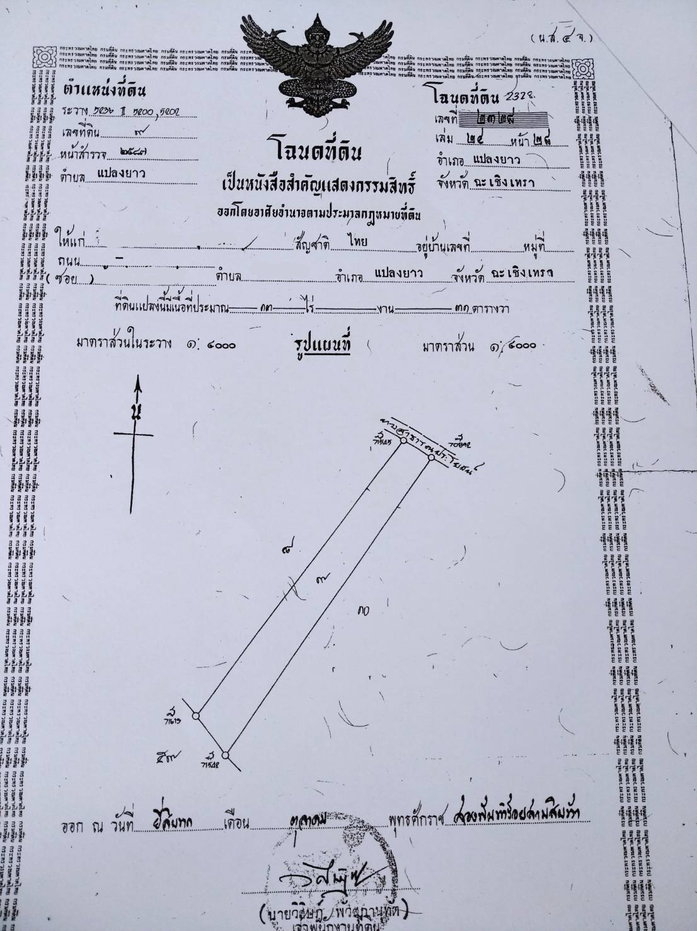 (น.ส. ๔ จ.)
ตำแหน่งที่ดิน
ระวาง 5236 II 5200, 5202
เลขที่ดิน ๙
หน้าสำรวจ ๒๕๔๗
ตำบล แปลงยาว
โฉนดที่ดิน 2328
เลขที่ ๒๓๒๘
เล่ม ๒๔ หน้า ๒๘
อำเภอ แปลงยาว
จังหวัด ฉะเชิงเทรา
โฉนดที่ดิน
เป็นหนังสือสำคัญแสดงกรรมสิทธิ์
ออกโดยอาศัยอำนาจตามประมวลกฎหมายที่ดิน
ให้แก่ สัญชาติ ไทย อยู่บ้านเลขที่ หมู่ที่
ถนน
ซอย ตำบล อำเภอ แปลงยาว จังหวัด ฉะเชิงเทรา
ที่ดินแปลงนี้มีเนื้อที่ประมาณ ๑๓ ไร่ งาน ๓๓ ตารางวา
มาตราส่วนในระวาง ๑: ๔๐๐๐ รูปแผนที่ มาตราส่วน ๑: ๔๐๐๐
น
ทางสาธารณประโยชน์
๘
๙
๑๐
ออก ณ วันที่ ยี่สิบหก เดือน ตุลาคม พุทธศักราช
เจ้าพนักงานที่ดิน